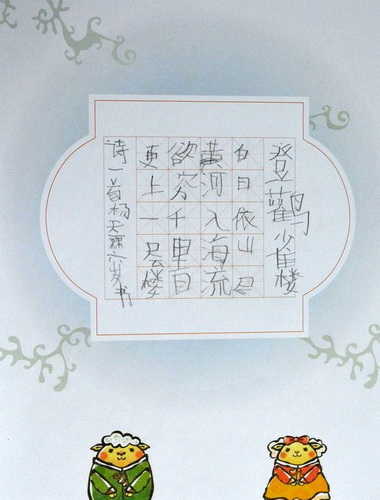 登鹳雀楼
白日依山尽
黄河入海流
欲穷千里目
更上一层楼
诗一首杨天霖六岁书